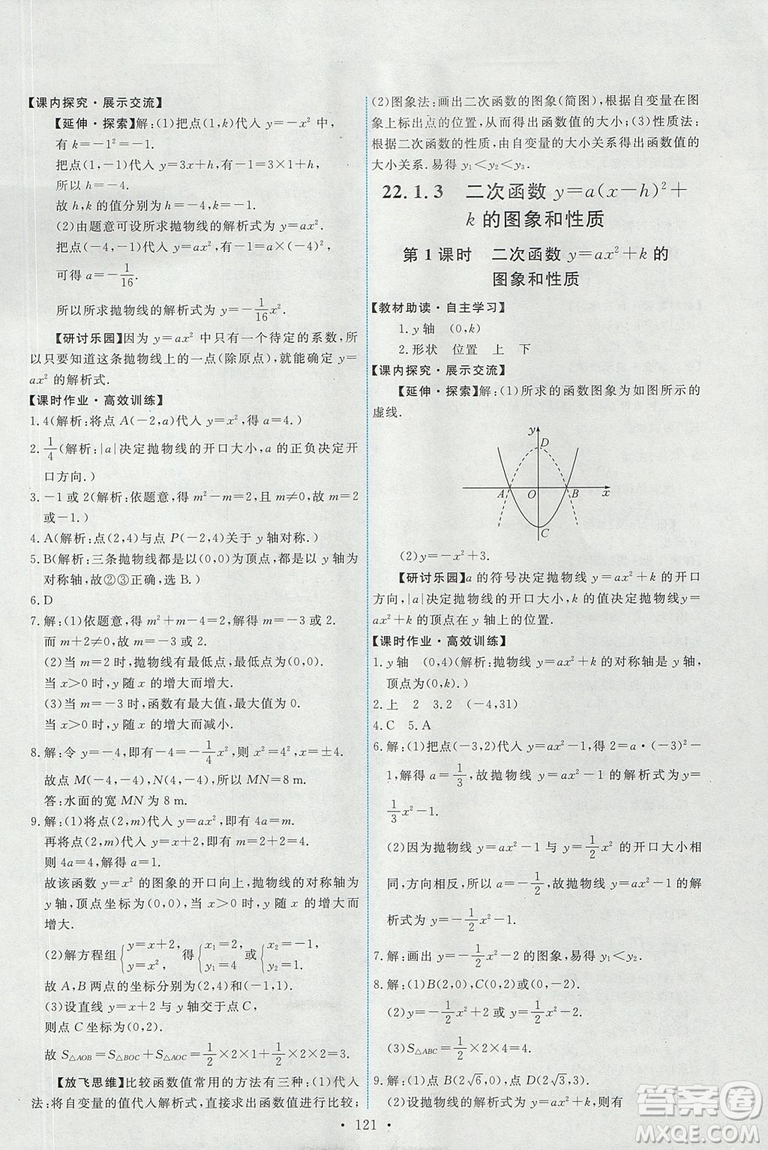 【课内探究·展示交流】
【延伸·探索】解:(1)把点(1,k)代入 y=-x² 中,
有 k=-1.
把点(1,k)代入 y=3x+h,有-1=3×1+h,
所以 h=-4.
故 h,k 的值分别为-4和-1.
(2)由题意可设所求抛物线的解析式为 y=ax².
把点(-4,-1)代入 y=ax²,有-1=a×(-4)²,
可得 a=-1/16.
所以所求抛物线的解析式为 y=-1/16x².
【研讨乐园】因为 y=ax² 中有一个待定的系数,所
以只要知道这条抛物线上的一点(除原点),就能求出 y=
ax² 的解析式.
【课时作业·高效训练】
1. 4(解析:将点 A(-2,a)代入 y=x²,得 a=4.)
2. 1/4(解析:|a|决定抛物线的开口大小,a 的正负决定开
口方向.)
3. -1或2(解析:依题意,得 m²-m=2,且 m≠0,故 m=2
或-1.)
4. A(解析:点(2,4)与点 P(-2,4)关于 y 轴对称.)
5. B(解析:三条抛物线都是以(0,0)为顶点,都是以 y 轴为
对称轴,故②③正确,选 B.)
6. D
7. 解:(1)依题意,得 m²+m-4=2,且 m+2≠0.
所以 m=-3 或 m=2,故 m=-3 或 2.
(2)当 m=2 时,抛物线有最低点,最低点为(0,0).
当 x>0 时,y 随 x 的增大而增大.
(3)当 m=-3 时,函数有最大值,最大值为0.
当 x>0 时,y 随 x 的增大而减小.
8. 解:令 y=-4,即有-4=-1/4x²,解得 x=±4.
故点 M(-4,-4),N(4,-4),所以 MN=8 m.
答:水面的宽 MN 为 8 m.
9. 解:(1)将点(2,m)代入 y=ax²,即有 4a=m.
再将点(2,m)代入 y=x+2,即有 m=2+2=4.
则 4a=4,解得 a=1.
故该函数 y=x² 的图象的开口向上,抛物线的对称轴为
y轴,顶点坐标为(0,0),当 x>0 时,y 随 x 的增大而
增大.
(2)解方程组{y=x+2, y=x², 得{x₁=2, y₁=4, {x₂=-1, y₂=1.
故 A,B 两点的坐标分别为(2,4)和(-1,1).
(3)设直线 y=x+2 与 y 轴交于点 C,
则点 C 的坐标为(0,2).
故 S△AOB=S△BOC+S△AOC=1/2×2×1+1/2×2×2=3.
【放飞思维】比较函数值常用的方法有三种:(1)代入
法:将自变量的值代入解析式,直接求出函数值进行比较;
(2)图象法:画出二次函数的图象(简图),根据自变量在图
象上标出点的位置,从而得出函数值的大小;(3)性质法:
根据二次函数的性质,由自变量的大小关系得出函数值的
大小关系.易得 y₁<y₂<y₃.
22.1.3 二次函数 y=a(x-h)²+
k 的图象和性质
第1课时 二次函数 y=ax²+k 的
图象和性质
【教材助读·自主学习】
1. y 轴 (0,k)
2. 形状 位置 上 下
【课内探究·展示交流】
【延伸·探索】解:(1)所求的函数图象为如图所示的
虚线.
y
D
A O B x
C
(2)y=-x²+3.
【研讨乐园】a 的符号决定抛物线 y=ax²+k 的开口
方向,|a|决定抛物线 y=ax²+k 的开口大小,抛物线 y=
ax²+k 的顶点在 y 轴上的位置.
【课时作业·高效训练】
1. y 轴 (0,4)(解析:抛物线 y=ax²+k 的对称轴是 y 轴,
顶点为(0,k).)
2. 上 2 3. 2 (-4,31)
4. C 5. A
6. 解:(1)把点(-3,2)代入 y=ax²-1,得 2=a·(-3)²-
1,解得 a=1/3,故抛物线 y=ax²-1 的解析式为 y=
1/3x²-1.
(2)因为抛物线 y=ax²-1 与 y=1/2x² 的开口大小相
同,方向相反,所以 a=-1/2,故抛物线 y=ax²-1 的解
析式为 y=-1/2x²-1.
7. 解:画出 y=-1/2x²-2 的图象,易得 y₁<y₂.
8. 解:(1)B(2,0),C(0,-2).
(2)y=-1/2x²+2.
(3)S△ABC=1/2×2×2=2.
9. 解:(1)点 B(2√6,0),点 D(2√5,1).
(2)设抛物线的解析式为 y=ax²+k,则有
· 121 ·
答案圈
MXQE.COM